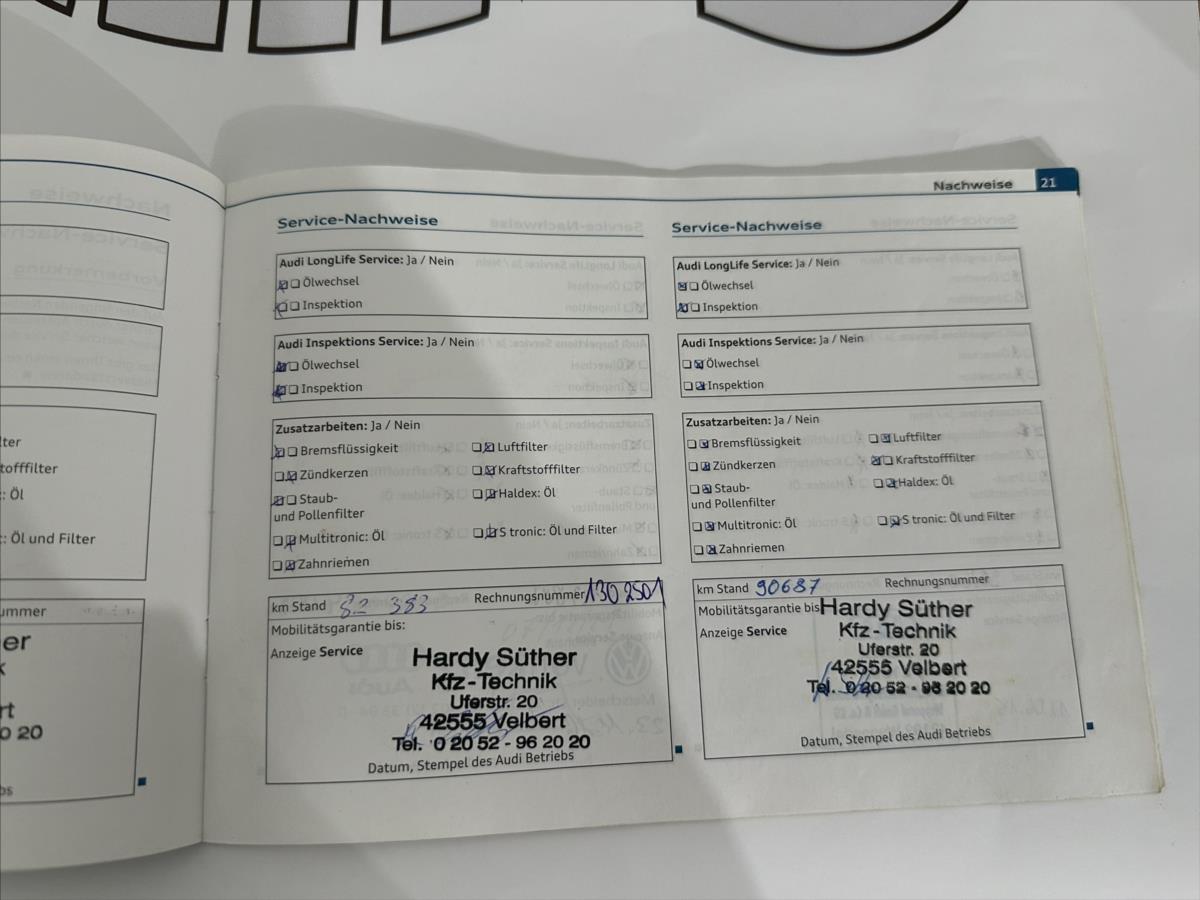 Nachweise 21
Service-Nachweise
Audi LongLife Service: Ja / Nein
Ölwechsel
Inspektion
Audi Inspektions Service: Ja / Nein
Ölwechsel
Inspektion
Zusatzarbeiten: Ja / Nein
Bremsflüssigkeit Luftfilter
Zündkerzen Kraftstofffilter
Staub- Haldex: Öl
und Pollenfilter
Multitronic: Öl S tronic: Öl und Filter
Zahnriemen
km Stand 82 383 Rechnungsnummer 130 2501
Mobilitätsgarantie bis:
Anzeige Service
Hardy Süther
Kfz-Technik
Uferstr. 20
42555 Velbert
Tel. 0 20 52 - 96 20 20
Datum, Stempel des Audi Betriebs
Service-Nachweise
Audi LongLife Service: Ja / Nein
Ölwechsel
Inspektion
Audi Inspektions Service: Ja / Nein
Ölwechsel
Inspektion
Zusatzarbeiten: Ja / Nein
Bremsflüssigkeit Luftfilter
Zündkerzen Kraftstofffilter
Staub- Haldex: Öl
und Pollenfilter
Multitronic: Öl S tronic: Öl und Filter
Zahnriemen
km Stand 90687 Rechnungsnummer
Mobilitätsgarantie bis
Anzeige Service
Hardy Süther
Kfz-Technik
Uferstr. 20
42555 Velbert
Tel. 0 20 52 - 96 20 20
Datum, Stempel des Audi Betriebs
: Öl
: Öl und Filter